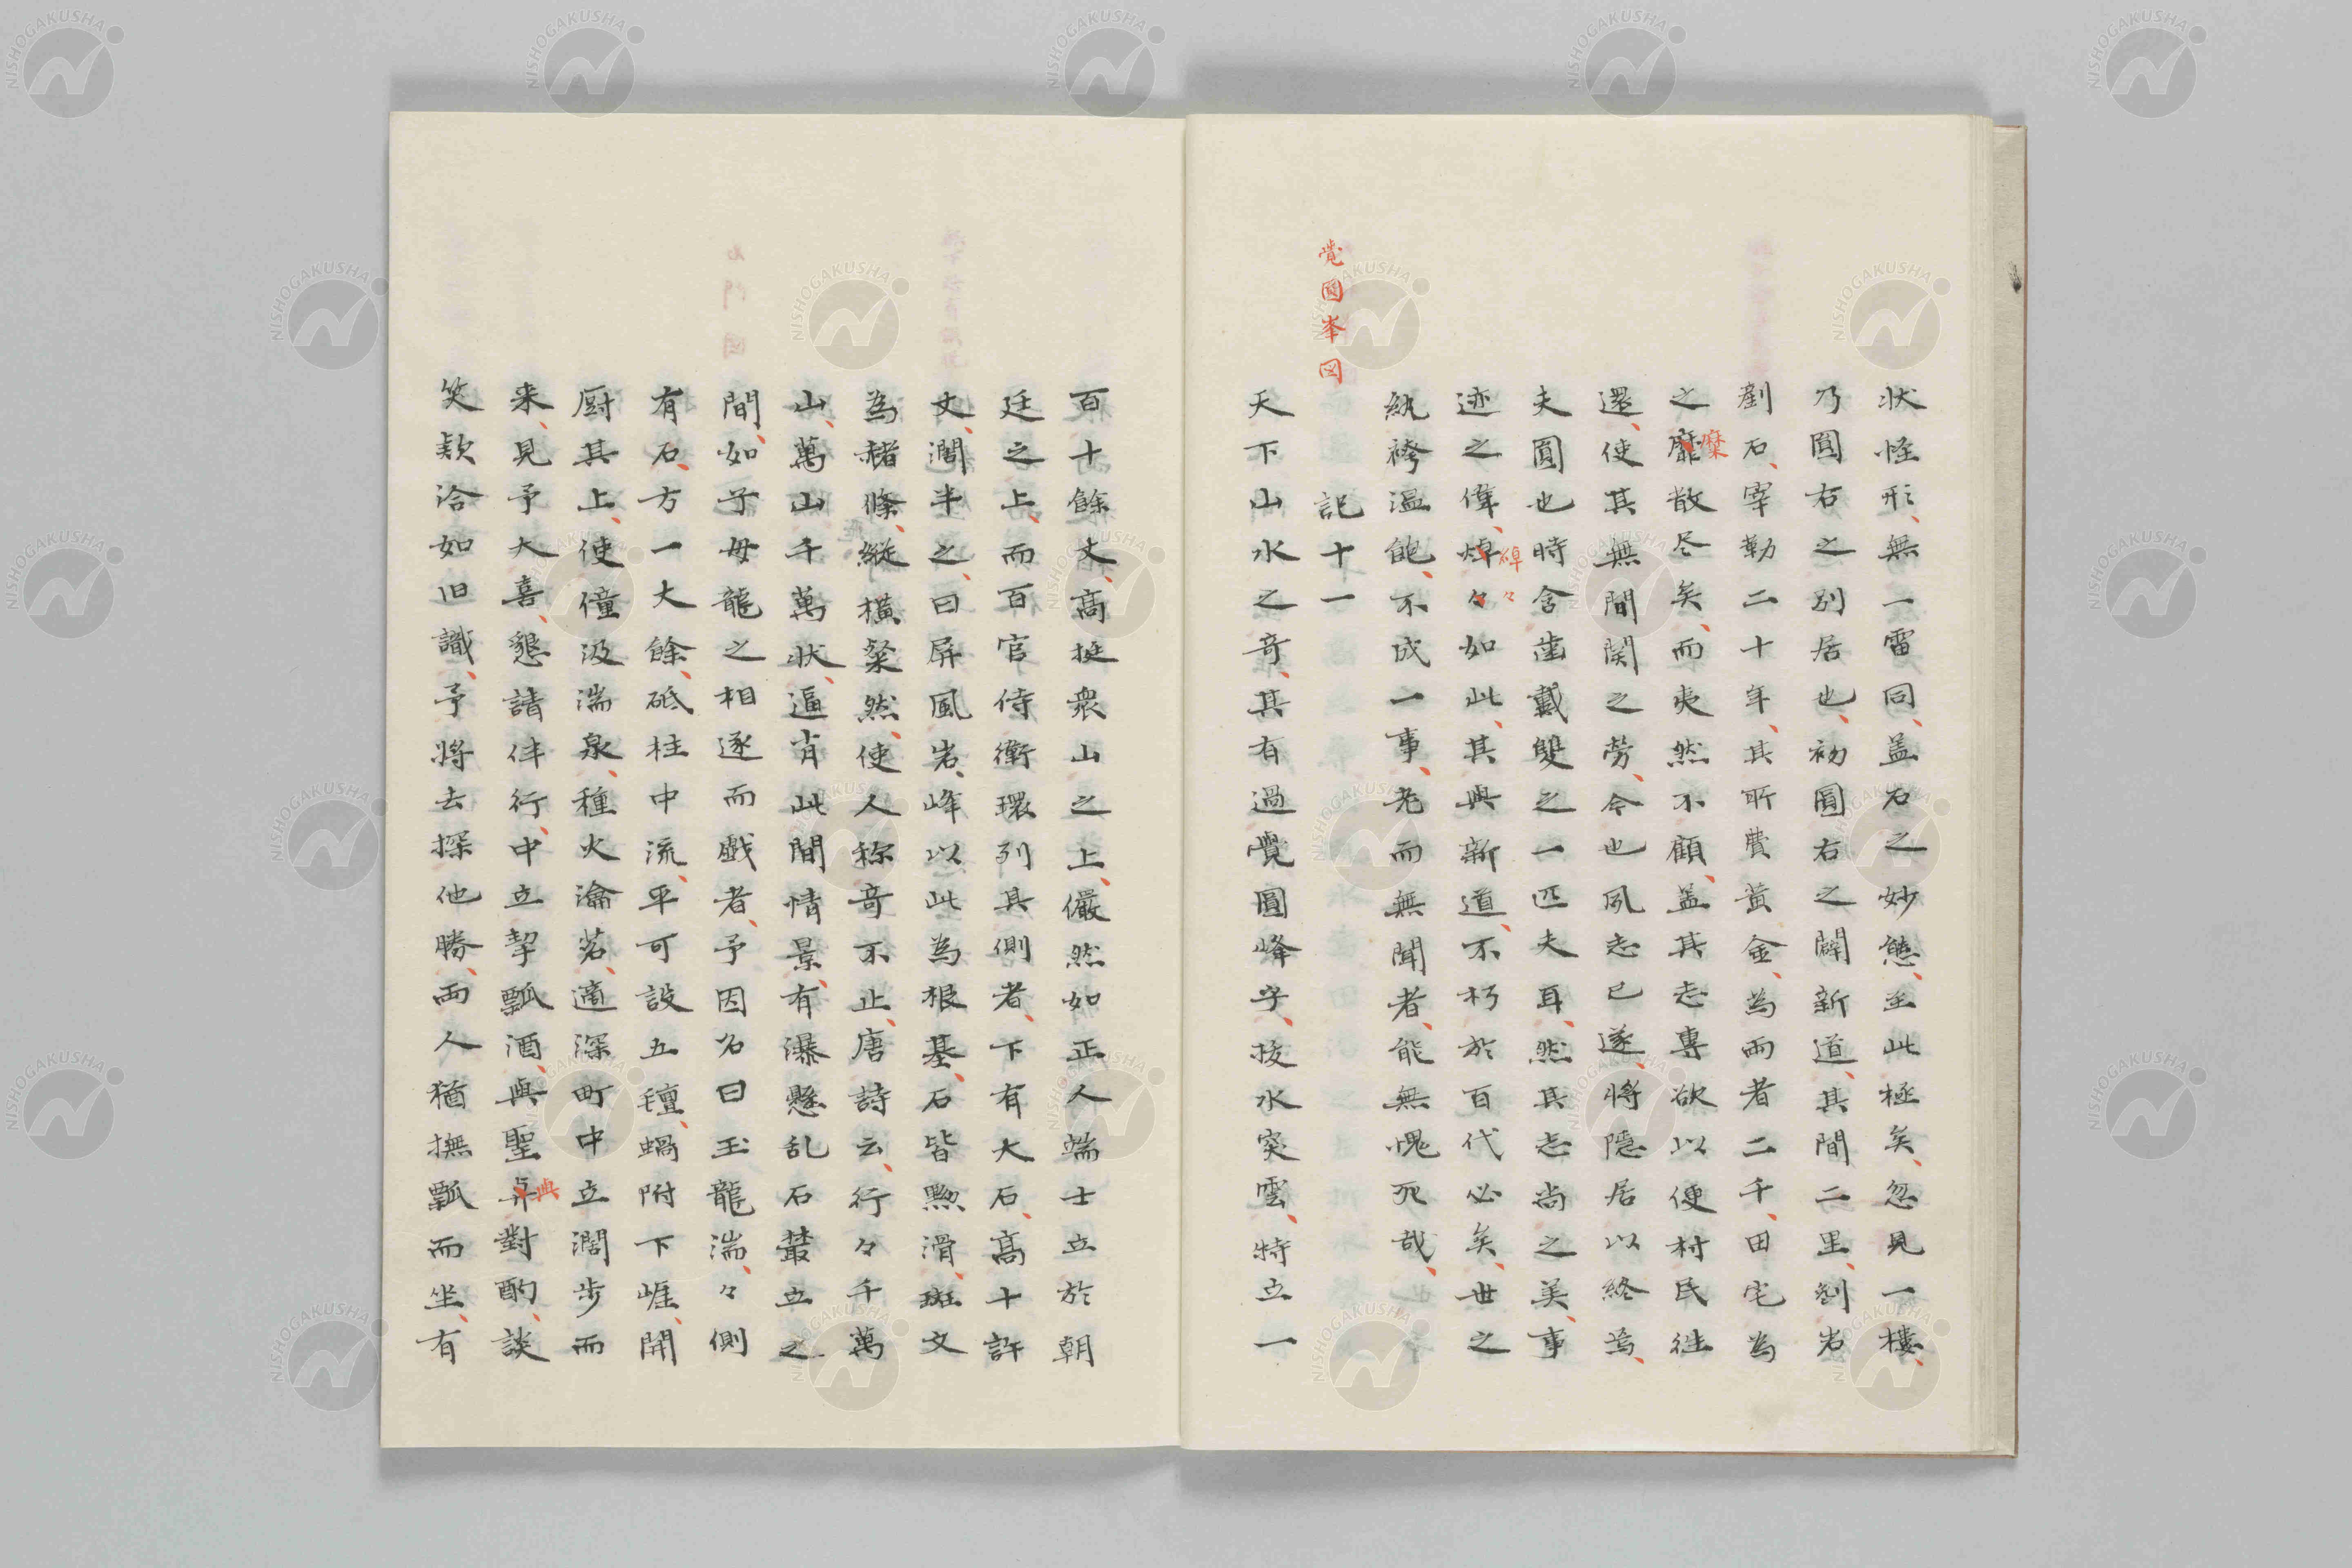 状怪形、無一雷同、盖石之妙態、至此極矣、忽見一楼、
乃圓右之別居也、初圓右之闢新道、其間二里、劃岩
劉石、宰勒二十年、其所費黄金、為両者二千、田宅為
之靡糜散尽矣、而夷然不顧、盖其志専欲以便村民往
還、使其無間関之労、今也夙志已遂、将隠居以終焉、
夫圓也時含歯戴髪之一匹夫耳、然其志尚之美、事
迹之偉、焯々碑々如此、其與新道不朽於百代必矣、世之
紈袴温飽、不成一事、老而無聞者、能無愧死哉、
覚圓峯図
記十一
天下山水之竒、其有過覺圓峰乎、抜水突雲、特立一
百十餘丈、髙挺衆山之上、儼然如正人端士立於朝
廷之上、而百官侍衛環列其側者、下有大石、髙十許
丈、濶半之、曰屏風岩、峰以此為根基、石皆黝滑、斑文
為赭條、縦横粲然、使人称竒不止、唐詩云、行々千萬
山、萬山千萬状、逼肖此間情景、有瀑懸乱石叢立之
間、如子母龍之相逐而戯者、予因名曰玉龍湍、々側
有石、方一大餘、砥柱中流、平可設五氊、蝸附下崕、開
厨其上、使僮汲湍泉、種火瀹茗、適深町中立濶歩而
来、見予大喜、懇請伴行、中立挈瓢酒、與聖與對酌、談
笑欵洽如旧識、予将去探他勝、両人猶撫瓢而坐、有
NISHOGAKUSHA